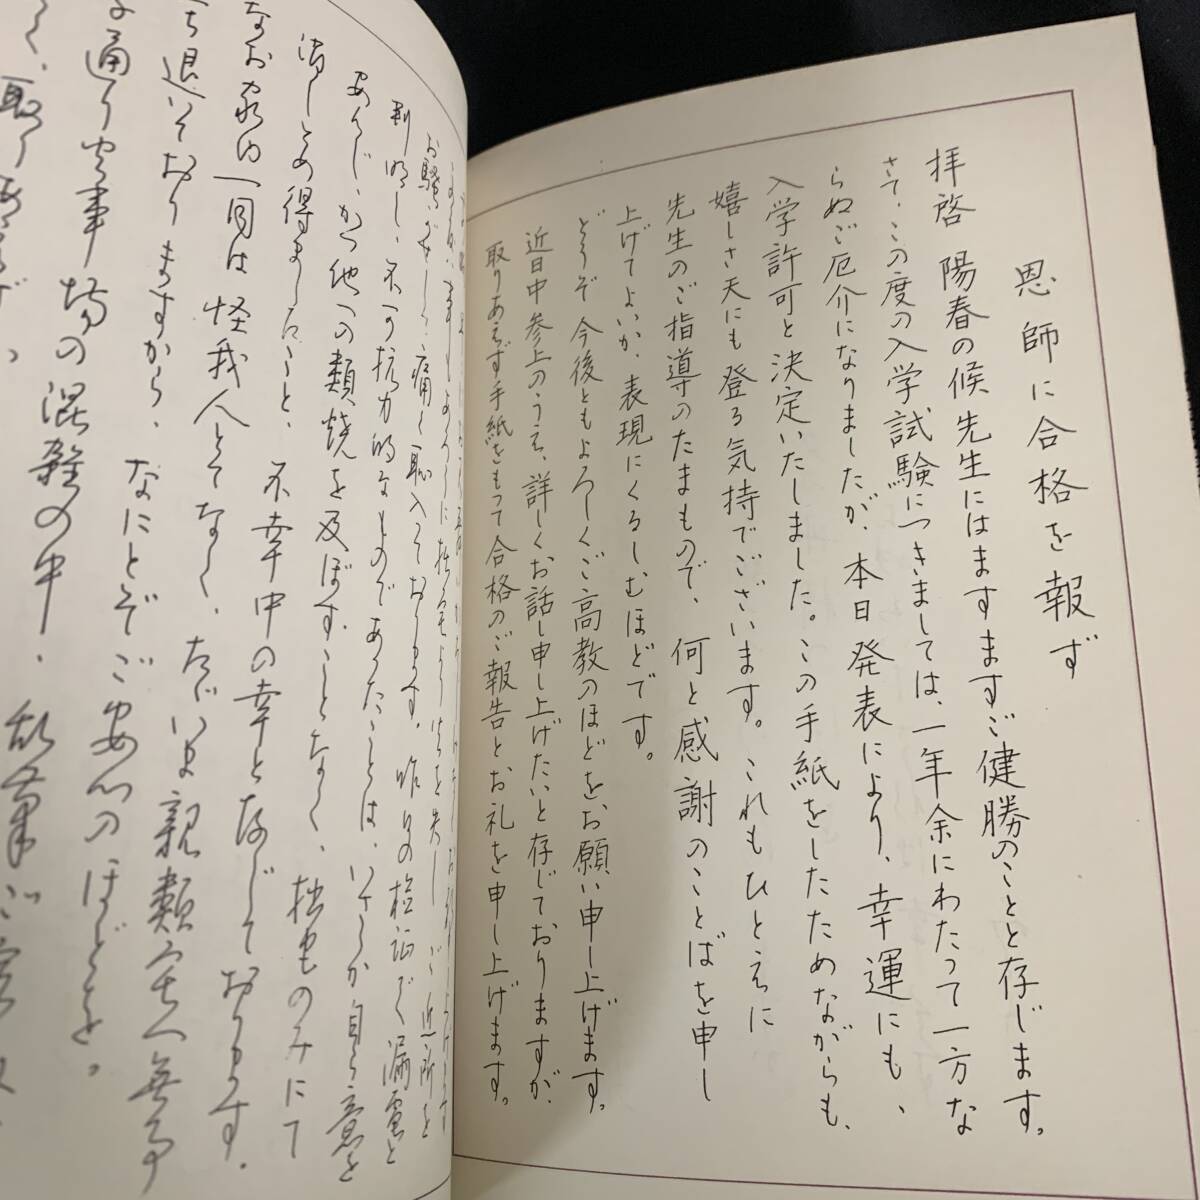 恩師に合格を報ず
拝啓 陽春の候先生にはますますご健勝のことと存じます。
さて、この度の入学試験につきましては、一年余にわたって一方な
らぬご厄介になりましたが、本日発表により、幸運にも、
入学許可と決定いたしました。この手紙をしたためながらも、
嬉しさ天にも登る気持でございます。これもひとえに
先生のご指導のたまもので、何と感謝のことばを申し
上げてよいか、表現にくるしむほどです。
どうぞ今後ともよろしくご高教のほどを、お願い申し上げます。
近日中参上のうえ、詳しくお話し申し上げたいと存じておりますが、
取りあえず手紙をもって合格のご報告とお礼を申し上げます。
お騒がせし、痛く恥入っております。昨夜の検証で漏電と
判明し、不可抗力的なものであったことは、いささか自ら意を
安んじ、かつ他への類焼を及ぼすことなく、拙宅のみにて
消しとめ得ましたこと、不幸中の幸と存じております。
なお家内一同は怪我人とてなく、ただいま親類宅へ無事
立ち退いておりますから、なにとぞご安心のほどを。
通り火事場の混雑の中、乱筆ご
取りあえず